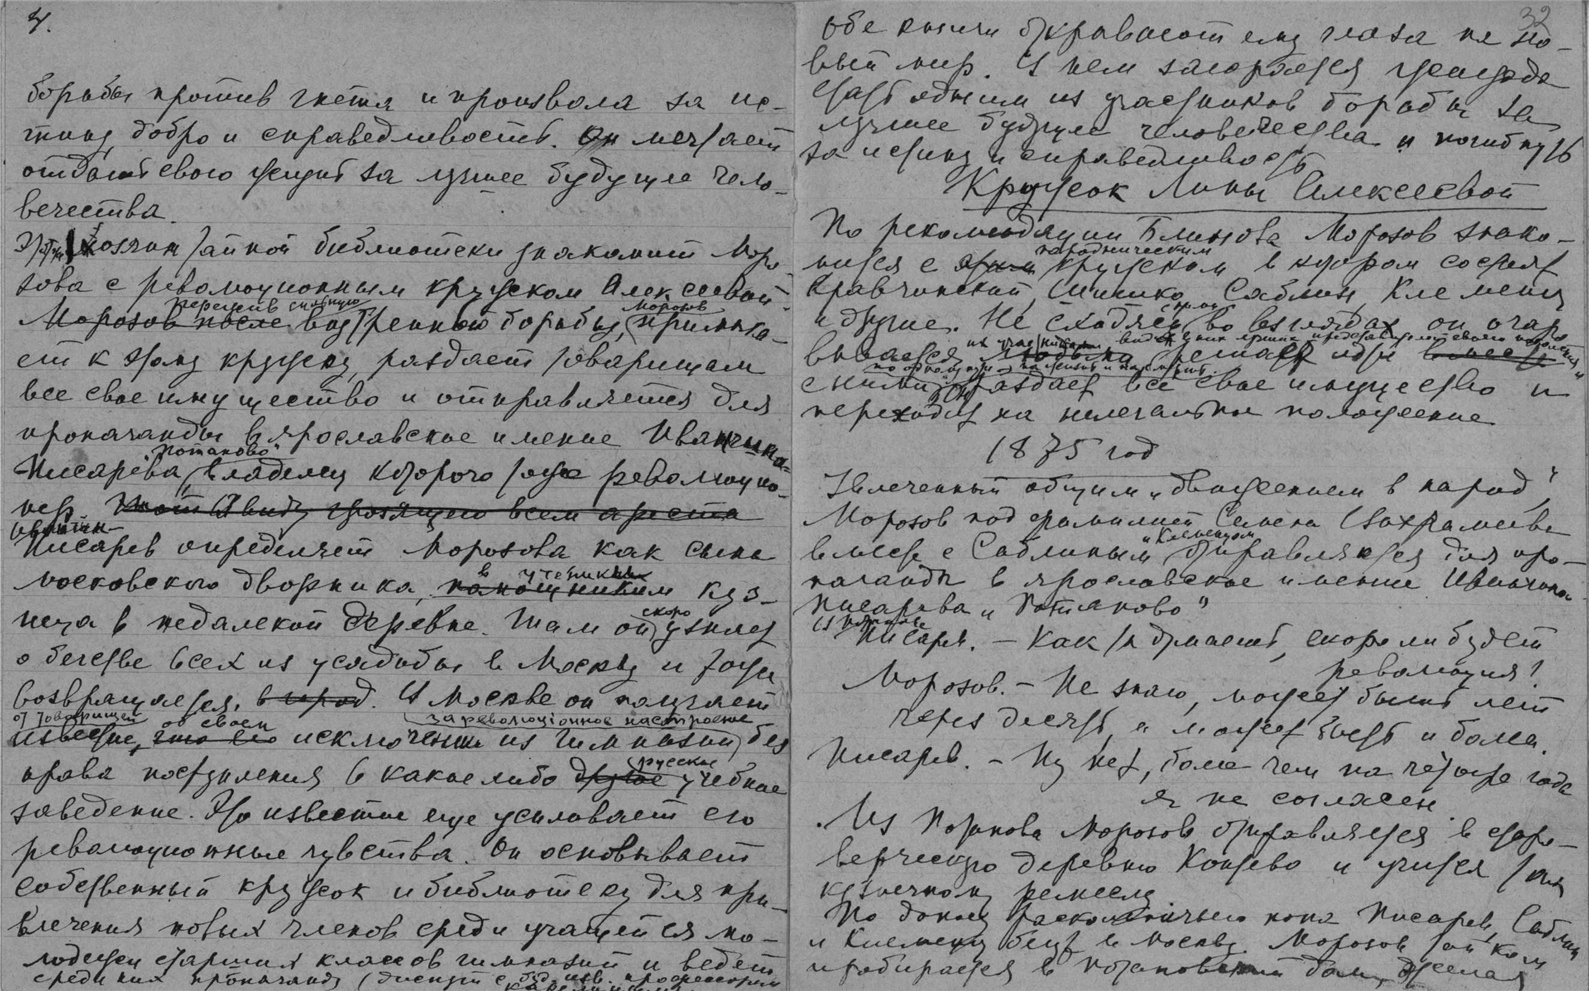 4.
борьбы против гнета и произвола за ис-
тину, добро и справедливость. Он мечтает
отдать свою жизнь за лучшее будущее чело-
вечества.
хозяин тайной библиотеки знакомит Моро-
зова с революционным кружком Алексеевой
пережив сильную Морозов
Морозов после внутренней борьбы, примыка-
ет к этому кружку, раздает товарищам
все свое имущество и отправляется для
пропаганды в ярославское имение Иванчина-
"Потапово"
Писарева, владелец которого тоже революцио-
нер. в виду грозящего всем ареста
Иванчин-
Писарев определяет Морозова как сына
в ученики
московского дворника, помощником куз-
скоро
неца в недалекой деревне. Там он узнает
о бегстве всех из усадьбы в Москву и тоже
возвращается в город. В Москве он получает
от товарищей об своем за революционное настроение
известие, что его исключении из гимназии без
русское
права поступления в какое либо другое учебное
заведение. Это известие еще усиливает его
революционные чувства. Он основывает
собственный кружок и библиотеку для при-
влечения новых членов среди учащейся мо-
лодежи старших классов гимназий и ведет
среди них пропаганду
32
обе книги открывают ему глаза на но-
вый мир. В нем загорается жажда
стать одним из участников борьбы за
лучшее будущее человечества и погибнуть
за истину и справедливость
Кружок Липы Алексеевой
По рекомендации Блинова Морозов знако-
народническим
мится с кружком в котором состоят
Кравчинский Шишко, Саблин Клеменц
и другие. Не сходясь во взглядах он очаро-
вывается решает идти вместе
с ними раздает все свое имущество и
переходит на нелегальное положение
1875 год
Увлеченный общим "движением в народ",
Морозов под фамилией Семена Вахрамеева
и Клеменцом
вместе с Саблиным отправляется для про-
паганды в ярославское имение Иванчина
Писарева "Потапово"
В Потапове
Писарев. – Как ты думаешь, скоро ли будет
революция?
Морозов. – Не знаю, может быть лет
через десять, а может быть и более.
Писарев. – Ну нет, более чем на четыре года
я не согласен
Из Потапова Морозов отправляется в старо-
верческую деревню Коптево и учится там
кузнечному ремеслу
По доносу раскольничьего попа Писарев, Саблин
и Клеменц бегут в Москву. Морозов тайком
пробирается в потаповский дом, желая